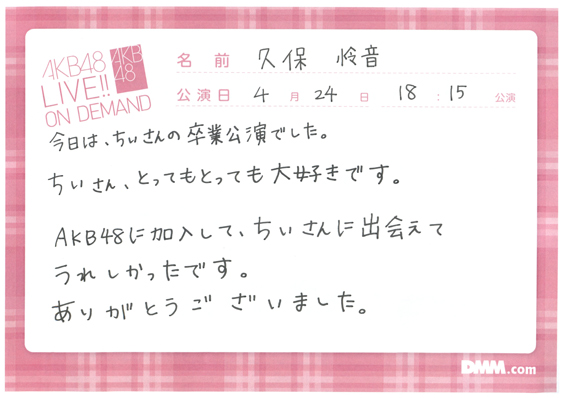 AKB48
LIVE!!
ON DEMAND
AKB
48
名前 久保 怜音
公演日 4月24日 18:15公演
今日は、ちぃさんの卒業公演でした。
ちぃさん、とってもとっても大好きです。
AKB48に加入して、ちぃさんに出会えて
うれしかったです。
ありがとうございました。
DMM.com